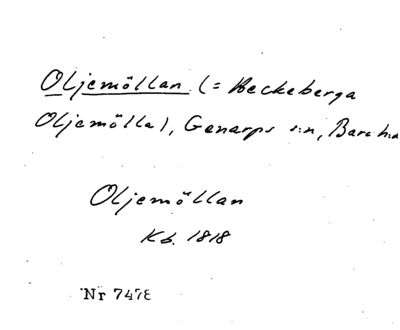 Oljemöllan (= Heckeberga
Oljemölla), Genarps s:n, Bara h:d
Oljemöllan
Kb. 1818
Nr 7478